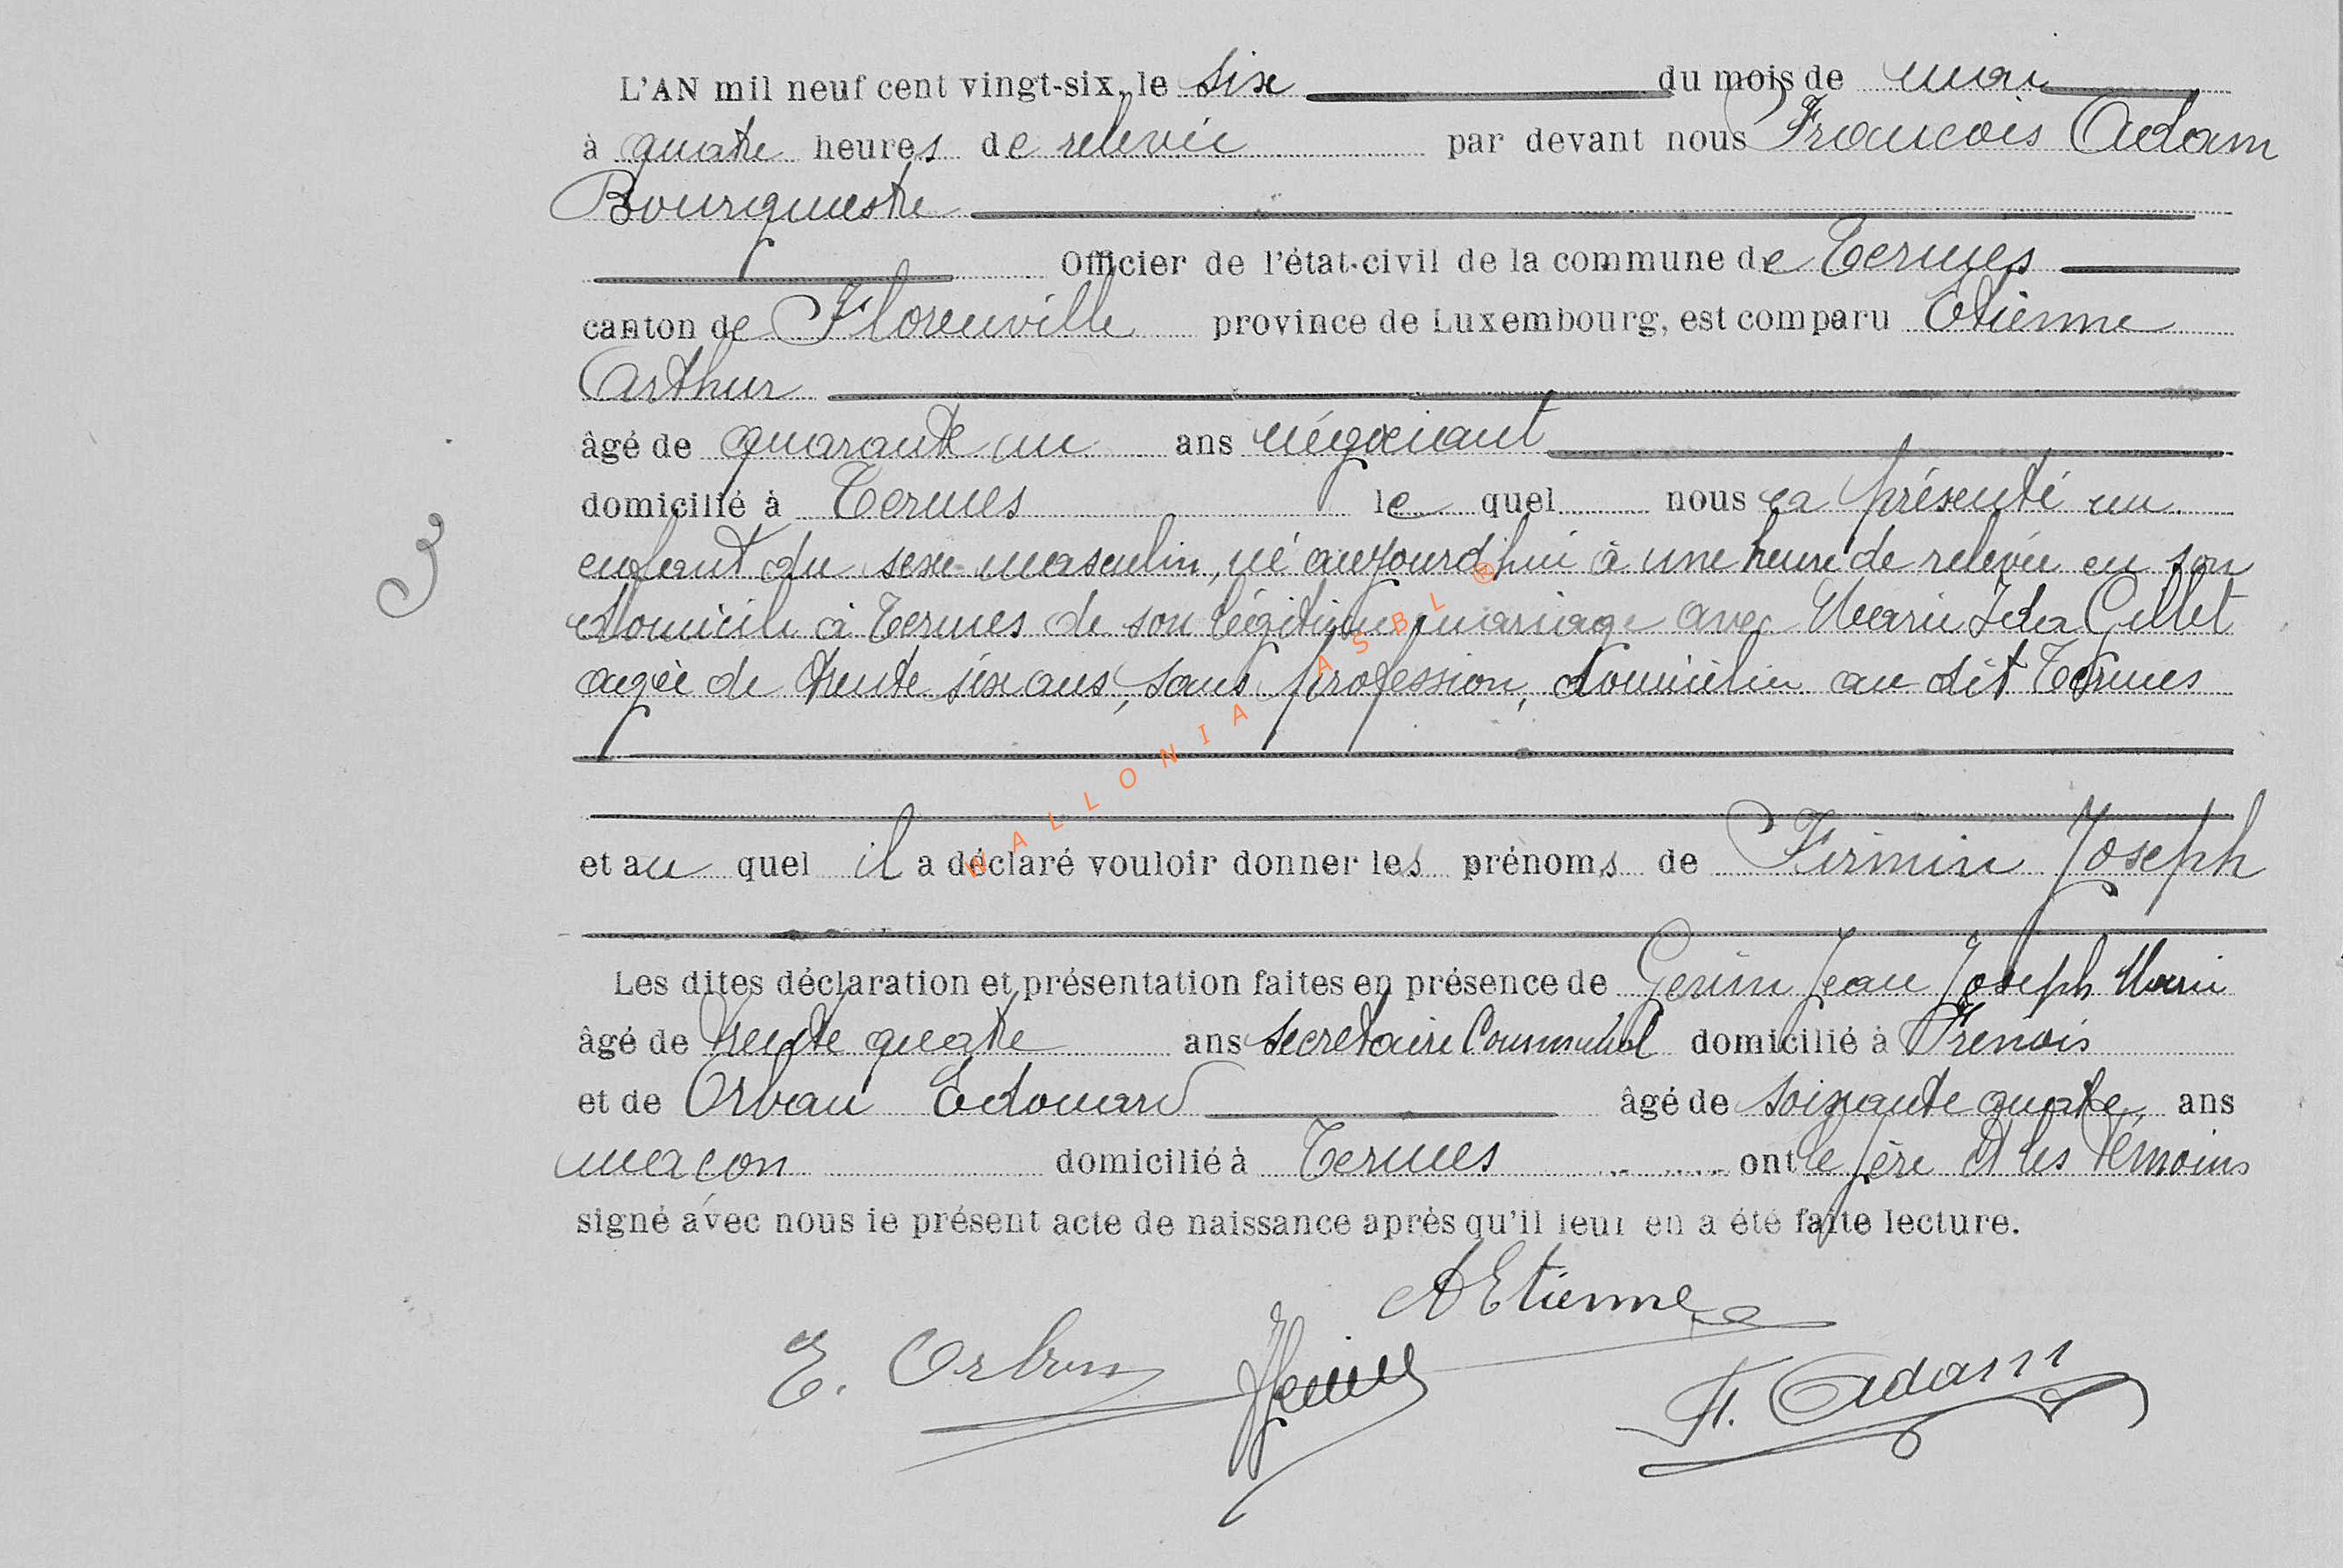 L'AN mil neuf cent vingt-six, le six du mois de mai
à quatre heures de relevée par devant nous François Adam
Bourgmestre
Officier de l'état-civil de la commune de Termes
canton de Florenville province de Luxembourg, est comparu Etienne
Arthur
âgé de quarante un ans négociant
domicilié à Termes le quel nous a présenté un
enfant du sexe masculin, né aujourd'hui à une heure de relevée en son
domicile à Termes de son légitime mariage avec Marie Ida Gillet
agée de trente six ans, sans profession, domiciliée au dit Termes
3
et au quel il a déclaré vouloir donner les prénoms de Firmin Joseph
Les dites déclaration et présentation faites en présence de Gerin Jean Joseph Marie
âgé de trente quatre ans secretaire Communal domicilié à Frenois
et de Orban Edouard âgé de soixante quatre ans
maçon domicilié à Termes ont le père et les témoins
signé avec nous le présent acte de naissance après qu'il leur en a été faite lecture.
AEtienne
E. Orban
F. Adam
WALLONIA ASBL ®